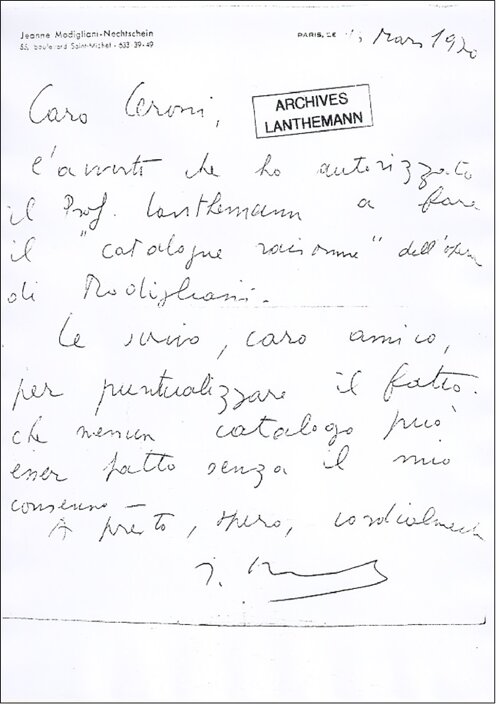 Jeanne Modigliani-Nechtschein
55, boulevard Saint-Michel - 633 39-49
PARIS, LE Mars 1970
Caro Ceroni,
ARCHIVES
LANTHEMANN
l'avverto che ho autorizzato
il Prof. Lanthemann a fare
il "catalogue raisonné" dell'opera
di Modigliani.
Le scrivo, caro amico,
per puntualizzare il fatto
che nessun catalogo può
esser fatto senza il mio
consenso -
A presto, spero, cordialmente
J.